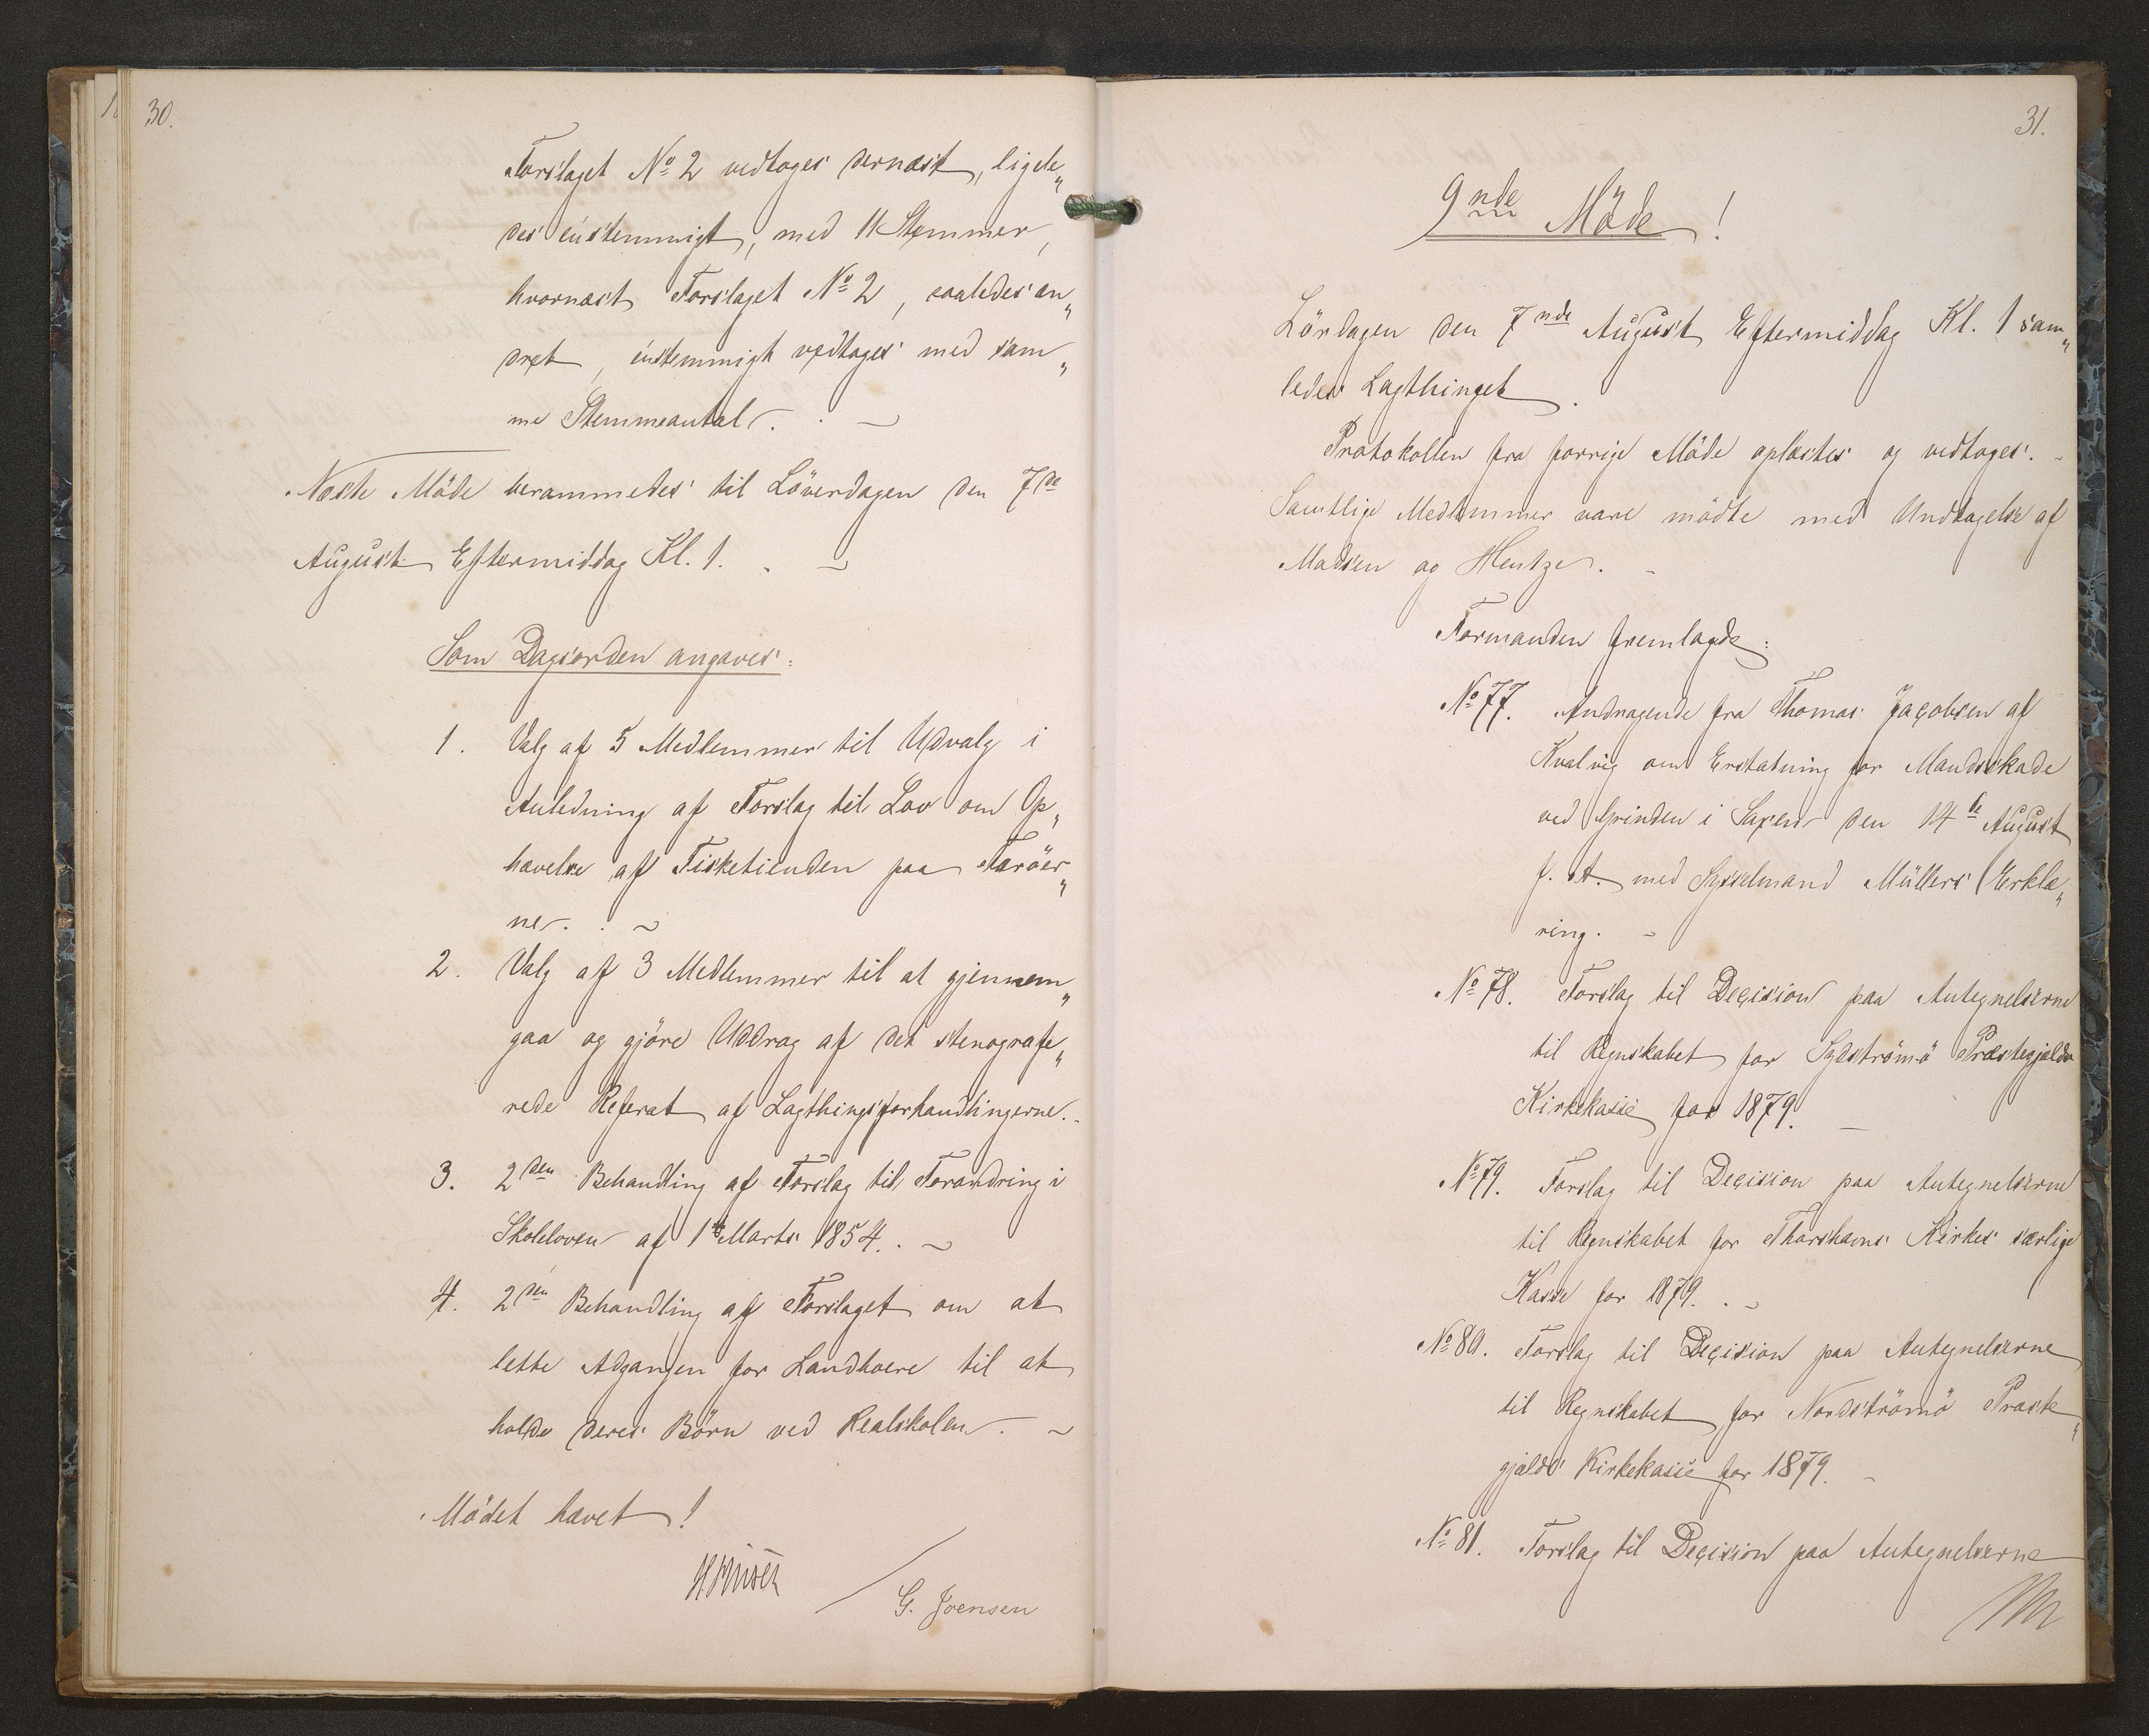 30.
Forslaget No 2 vedtoges dernæst, ligele„
des énstemmigt, med 11 Stemmer,
hvornæst Forslaget No 2, saaledes æn„
dret, énstemmigt vedtoges med sam„
me Stemmeantal.
Næste Möde berammedes til Löverdagen den 7de
August Eftermiddag Kl. 1.
Som Dagsorden angaves:
1. Valg af 5 Medlemmer til Udvalg i
Anledning af Forslag til Lov om Op„
hævelse af Fisketienden paa Færöer„
ne.
2. Valg af 3 Medlemmer til at gjennem„
gaa og gjöre Uddrag af det stenografe„
rede Referat af Lagthingsforhandlingerne.
3. 2den Behandling af Forslag til Forandring i
Skoleloven af 1ste Marts 1854.
4. 2den Behandling af Forslaget om at
lette Adgangen for Landboere til at
holde deres Börn ved Realskolen.
Mödet hævet!
G. Joensen
31.
9nde Möde!
Lördagen den 7nde August Eftermiddag Kl. 1 sam„
ledes Lagthinget.
Protokollen fra forrige Möde oplæstes og vedtoges.
Samtlige Medlemmer vare mödte med Undtagelse af
Madsen og Hentze.
Formanden fremlagde:
No 77. Andragende fra Thomas Jacobsen af
Kvalvig om Erstatning for Mandsskade
ved Grinden i Saxen den 14de August
f. A. med Sysselmand Müllers Erklæ„
ring.
No 78. Forslag til Decision paa Antegnelserne
til Regnskabet for Sydströmö Præstegjælds
Kirkekasse for 1879.
No 79. Forslag til Decision paa Antegnelserne
til Regnskabet for Thorshavns Kirkes særlige
Kasse for 1879.
No 80. Forslag til Decision paa Antegnelserne
til Regnskabet for Nordströmö Præste„
gjælds Kirkekasse for 1879.
No 81. Forslag til Decision paa Antegnelserne